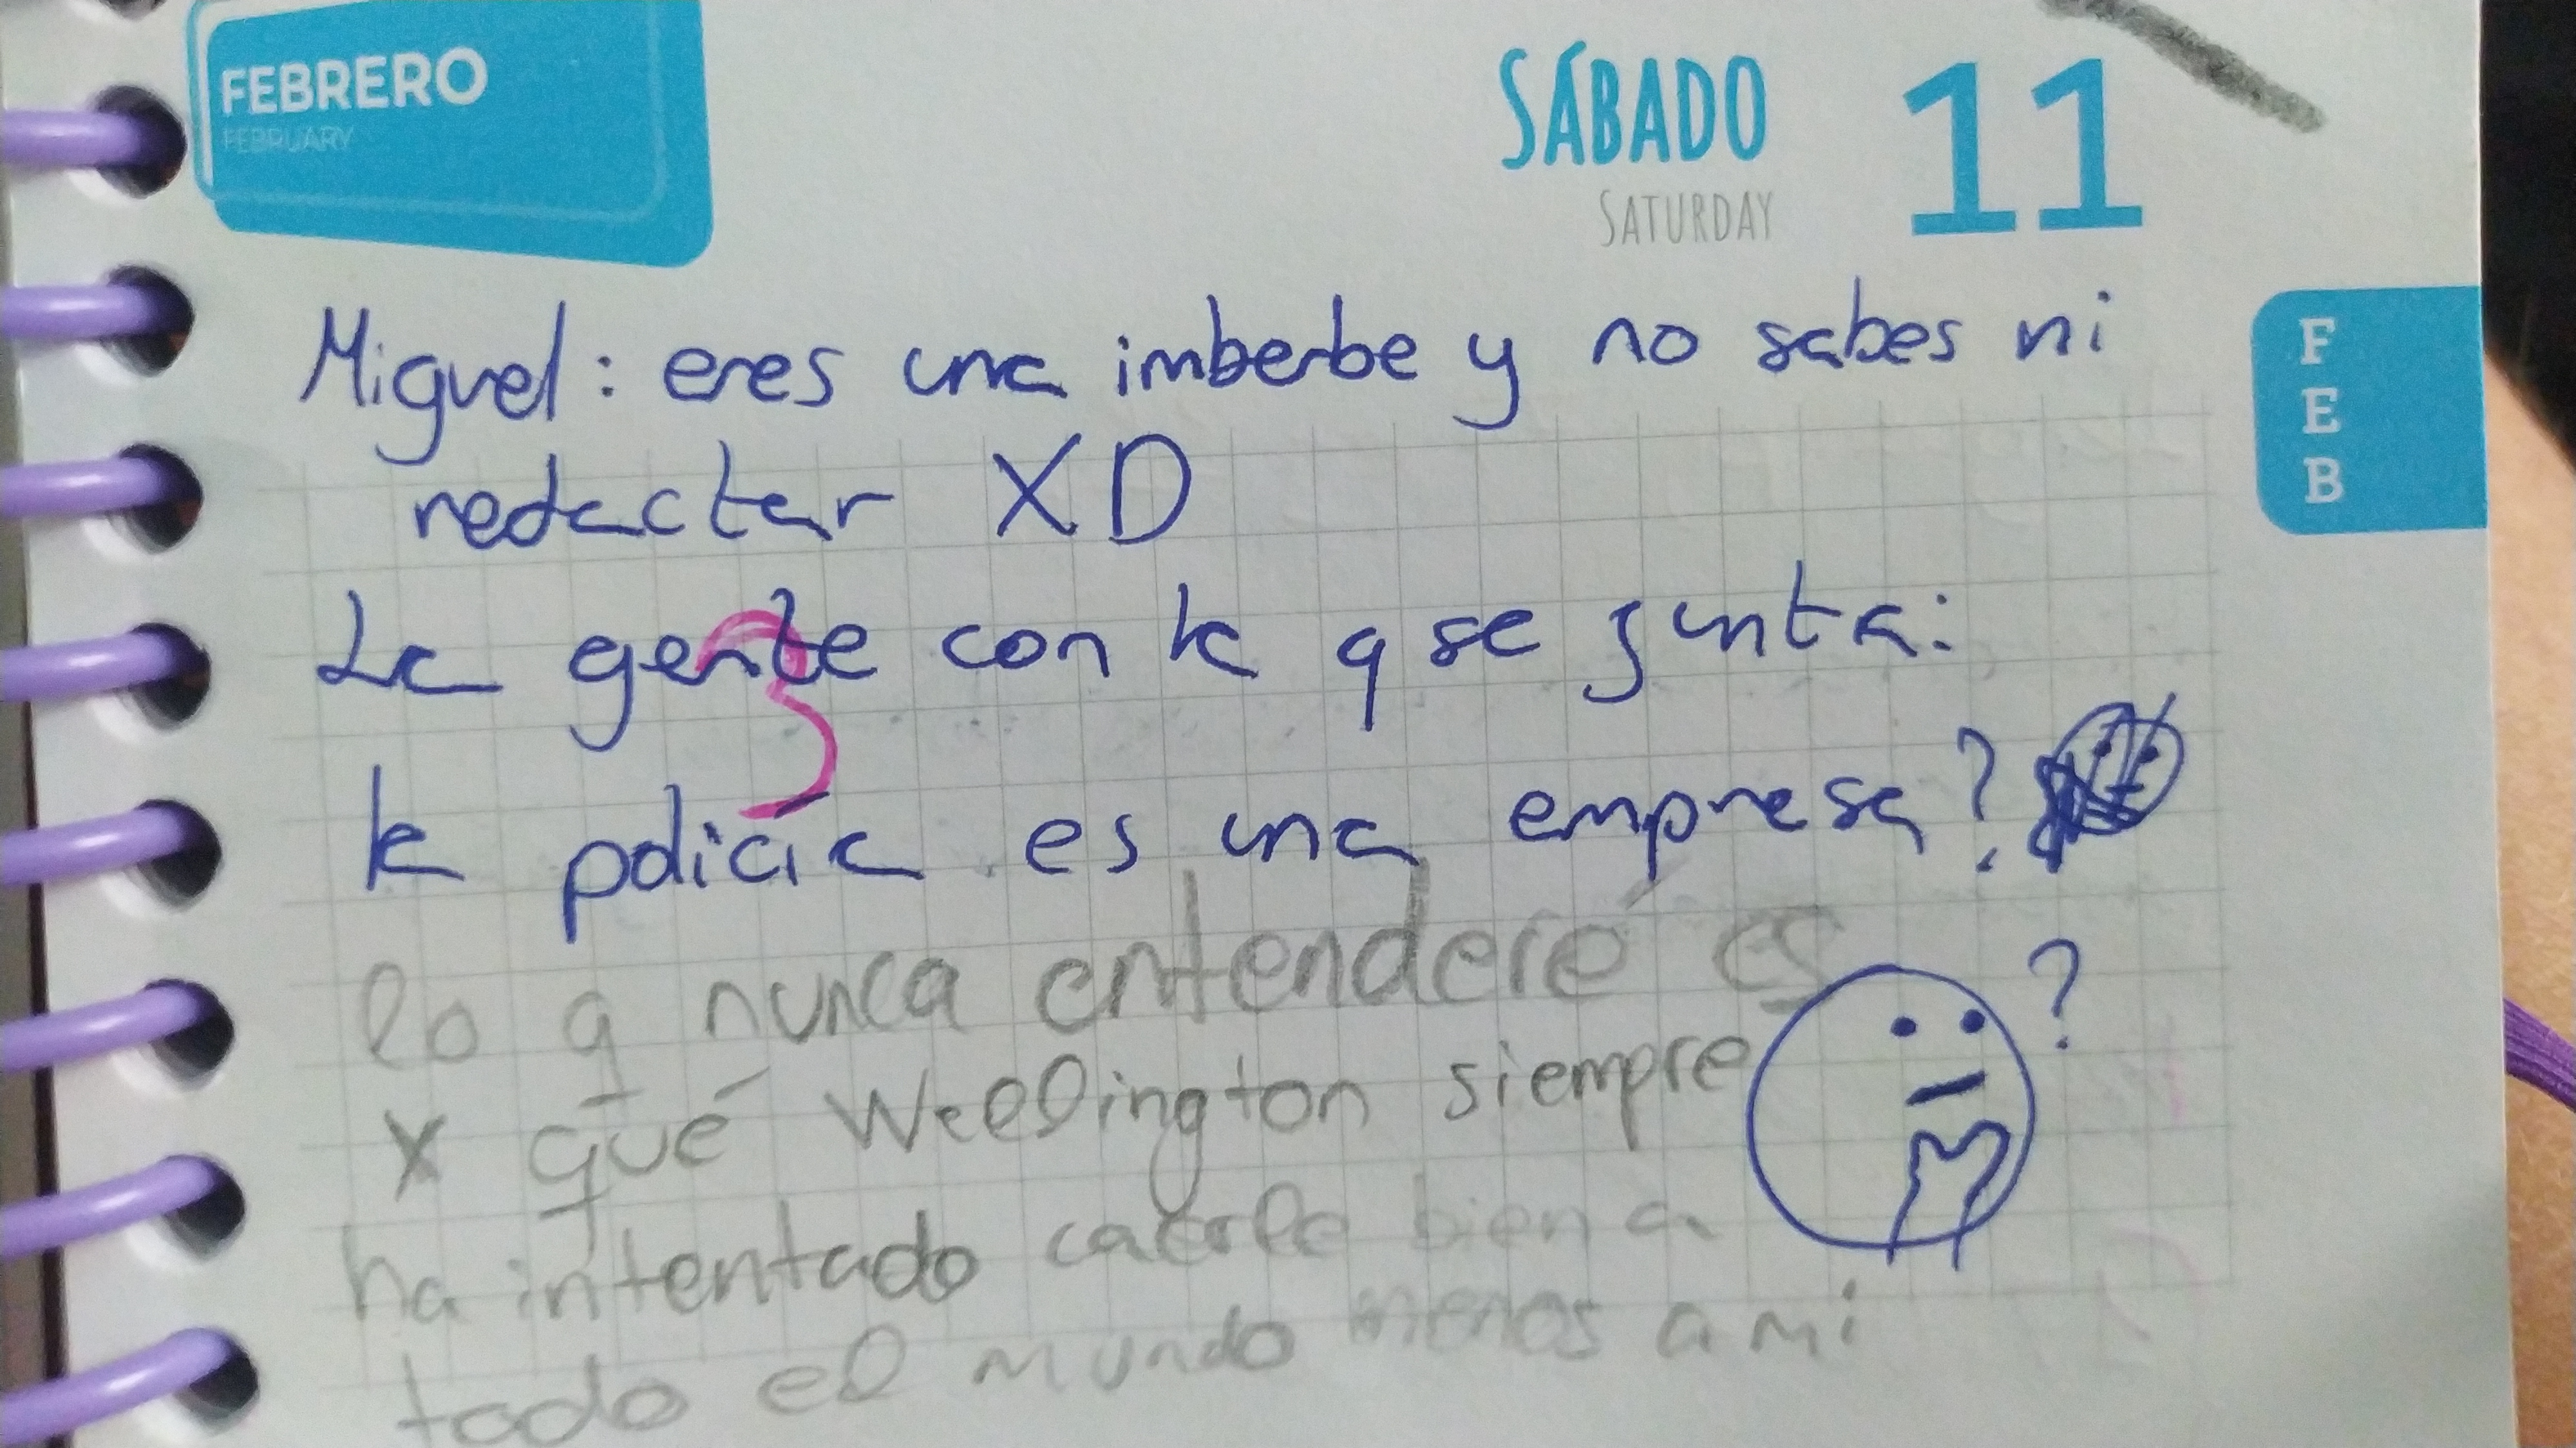 FEBRERO
FEBRUARY
SÁBADO
SATURDAY
11
F
E
B
Miguel: eres una imberbe y no sabes ni
redactar XD
La gente con la q se junta:
la policía es una empresa?
lo q nunca entenderé es
x qué Wellington siempre
?
ha intentado caerle bien a
todo el mundo menos a mi